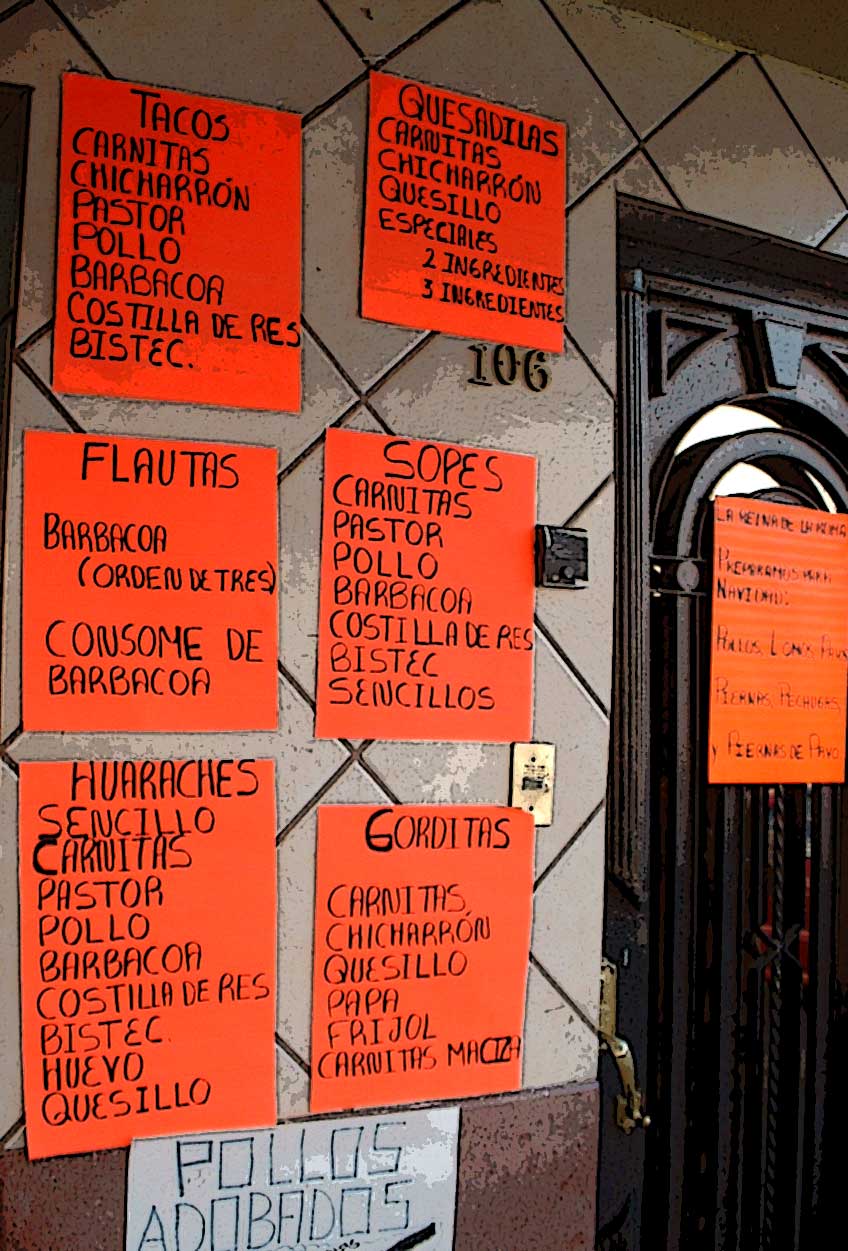 TACOS
CARNITAS
CHICHARRÓN
PASTOR
POLLO
BARBACOA
COSTILLA DE RES
BISTEC.
QUESADILAS
CARNITAS
CHICHARRÓN
QUESILLO
ESPECIALES
2 INGREDIENTES
3 INGREDIENTES
106
FLAUTAS
BARBACOA
(ORDEN DE TRES)
CONSOME DE
BARBACOA
SOPES
CARNITAS
PASTOR
POLLO
BARBACOA
COSTILLA DE RES
BISTEC
SENCILLOS
LA REINA DE LA
PREPARAMOS PARA
NAVIDAD:
POLLOS, LOMOS, PAVO
PIERNAS, PECHUGAS,
Y PIERNAS DE PAVO
HUARACHES
SENCILLO
CARNITAS
PASTOR
POLLO
BARBACOA
COSTILLA DE RES
BISTEC.
HUEVO
QUESILLO
GORDITAS
CARNITAS
CHICHARRÓN
QUESILLO
PAPA
FRIJOL
CARNITAS MACIZA
POLLOS
ADOBADOS